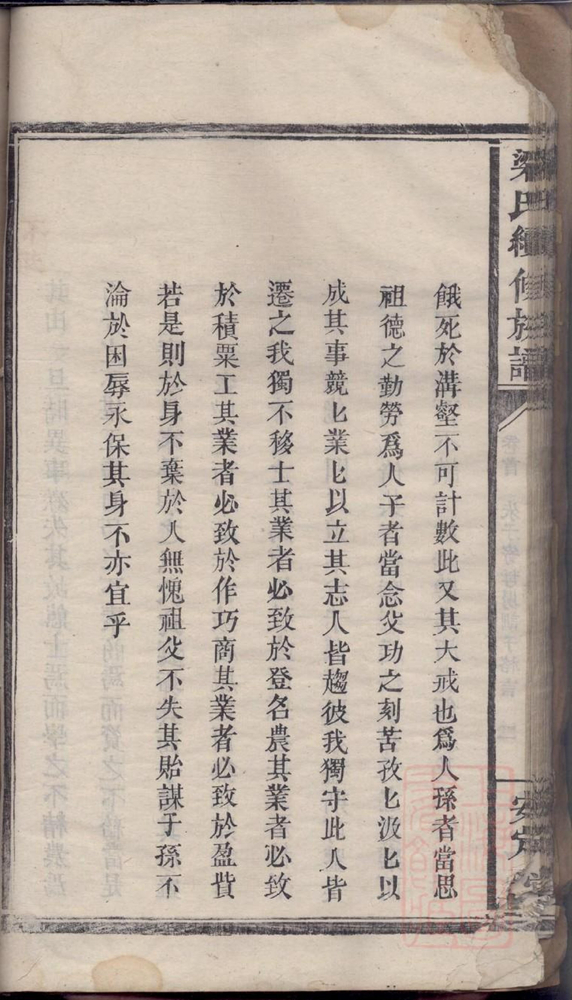 餓死於溝壑不可計數此又其大戒也爲人孫者當思
祖德之勤勞爲人子者當念父功之刻苦孜匕汲匕以
成其事競匕業匕以立其志人皆趨彼我獨守此人皆
遷之我獨不移士其業者必致於登名農其業者必致
於積粟工其業者必致於作巧商其業者必致於盈貲
若是則於身不棄於人無愧祖父不失其貽謀子孫不
淪於困辱永保其身不亦宜乎
梁氏續修族譜
安定